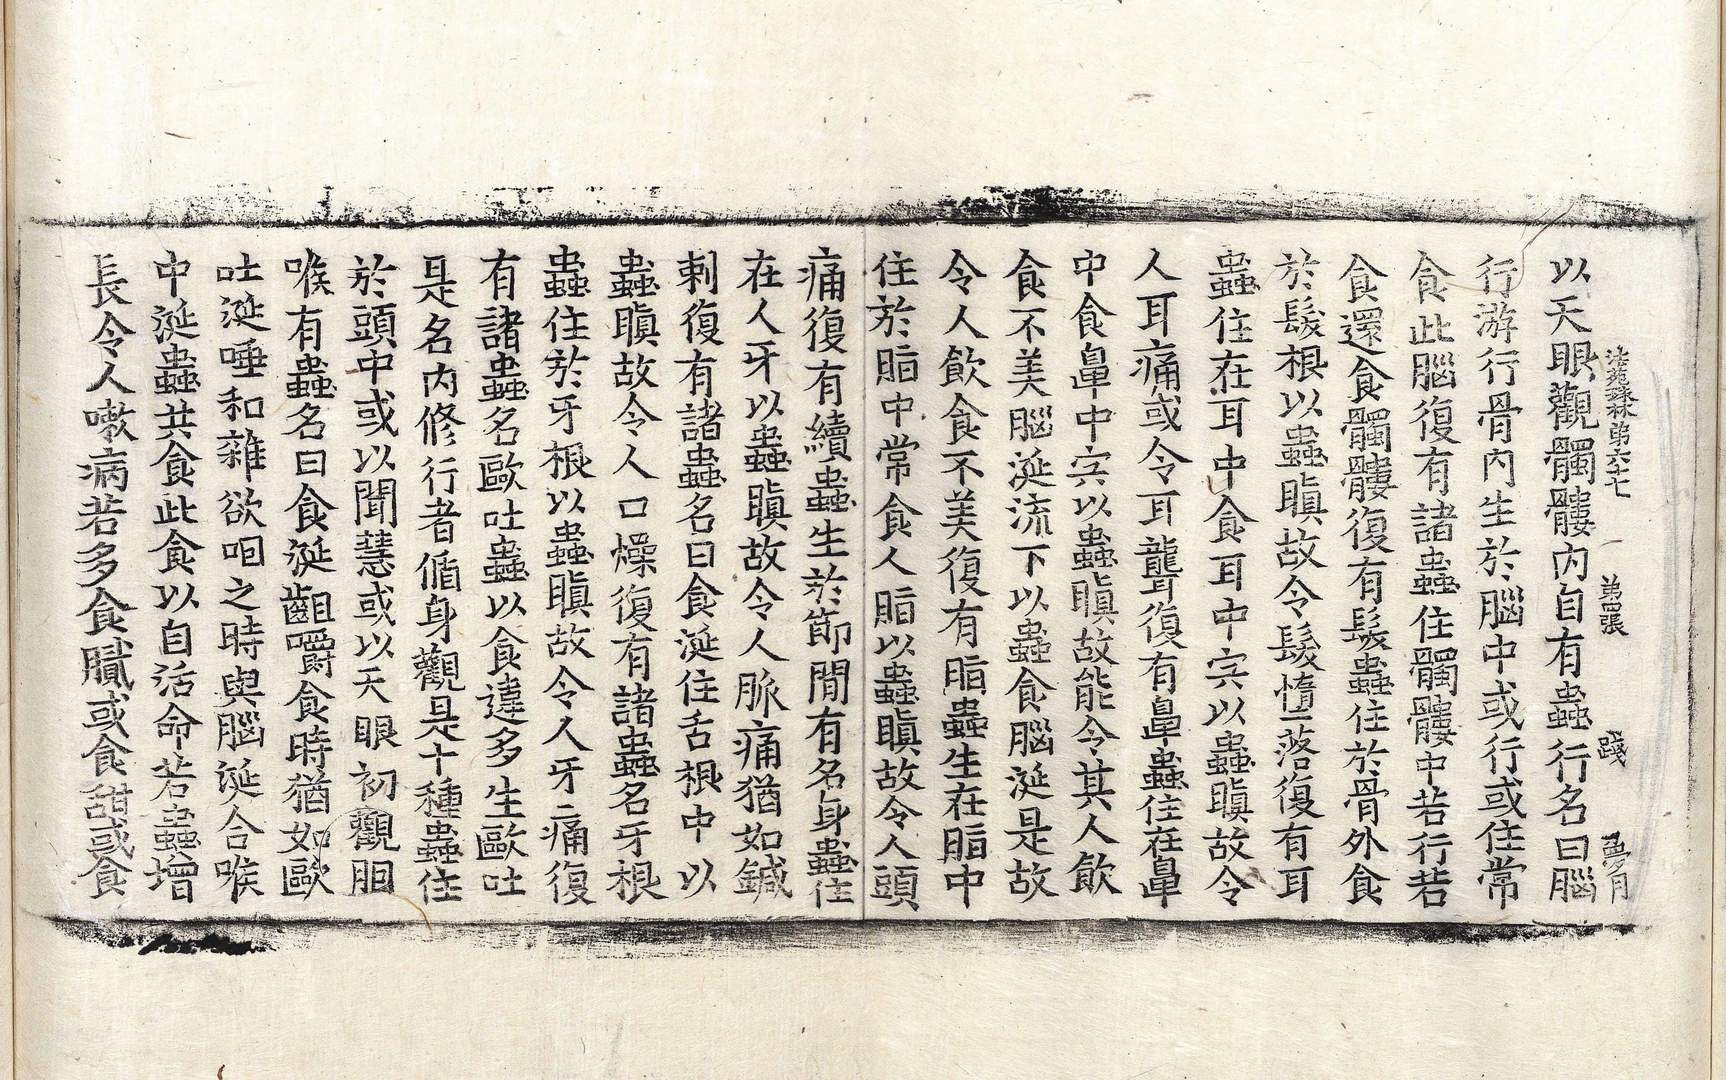 法苑珠林第六七 第四張 踐 夛月
以天眼觀髑髏內自有蟲行名曰腦
行游行骨內生於腦中或行或住常
食此腦復有諸蟲住髑髏中若行若
食還食髑髏復有髮蟲住於骨外食
於髮根以蟲瞋故令髮墮落復有耳
蟲住在耳中食耳中宍以蟲瞋故令
人耳痛或令耳聾復有鼻蟲住在鼻
中食鼻中宍以蟲瞋故能令其人飲
食不美腦涎流下以蟲食腦涎是故
令人飲食不美復有脂蟲生在脂中
住於脂中常食人脂以蟲瞋故令人頭
痛復有續蟲生於節間有名身蟲住
在人牙以蟲瞋故令人脈痛猶如鍼
刺復有諸蟲名曰食涎住舌根中以
蟲瞋故令人口燥復有諸蟲名牙根
蟲住於牙根以蟲瞋故令人牙痛復
有諸蟲名歐吐蟲以食違多生歐吐
是名內修行者循身觀是十種蟲住
於頭中或以聞慧或以天眼初觀咽
喉有蟲名曰食涎齟嚼食時猶如歐
吐涎唾和雜欲咽之時與腦涎合喉
中涎蟲共食此食以自活命若蟲增
長令人嗽病若多食膩或食甜或食